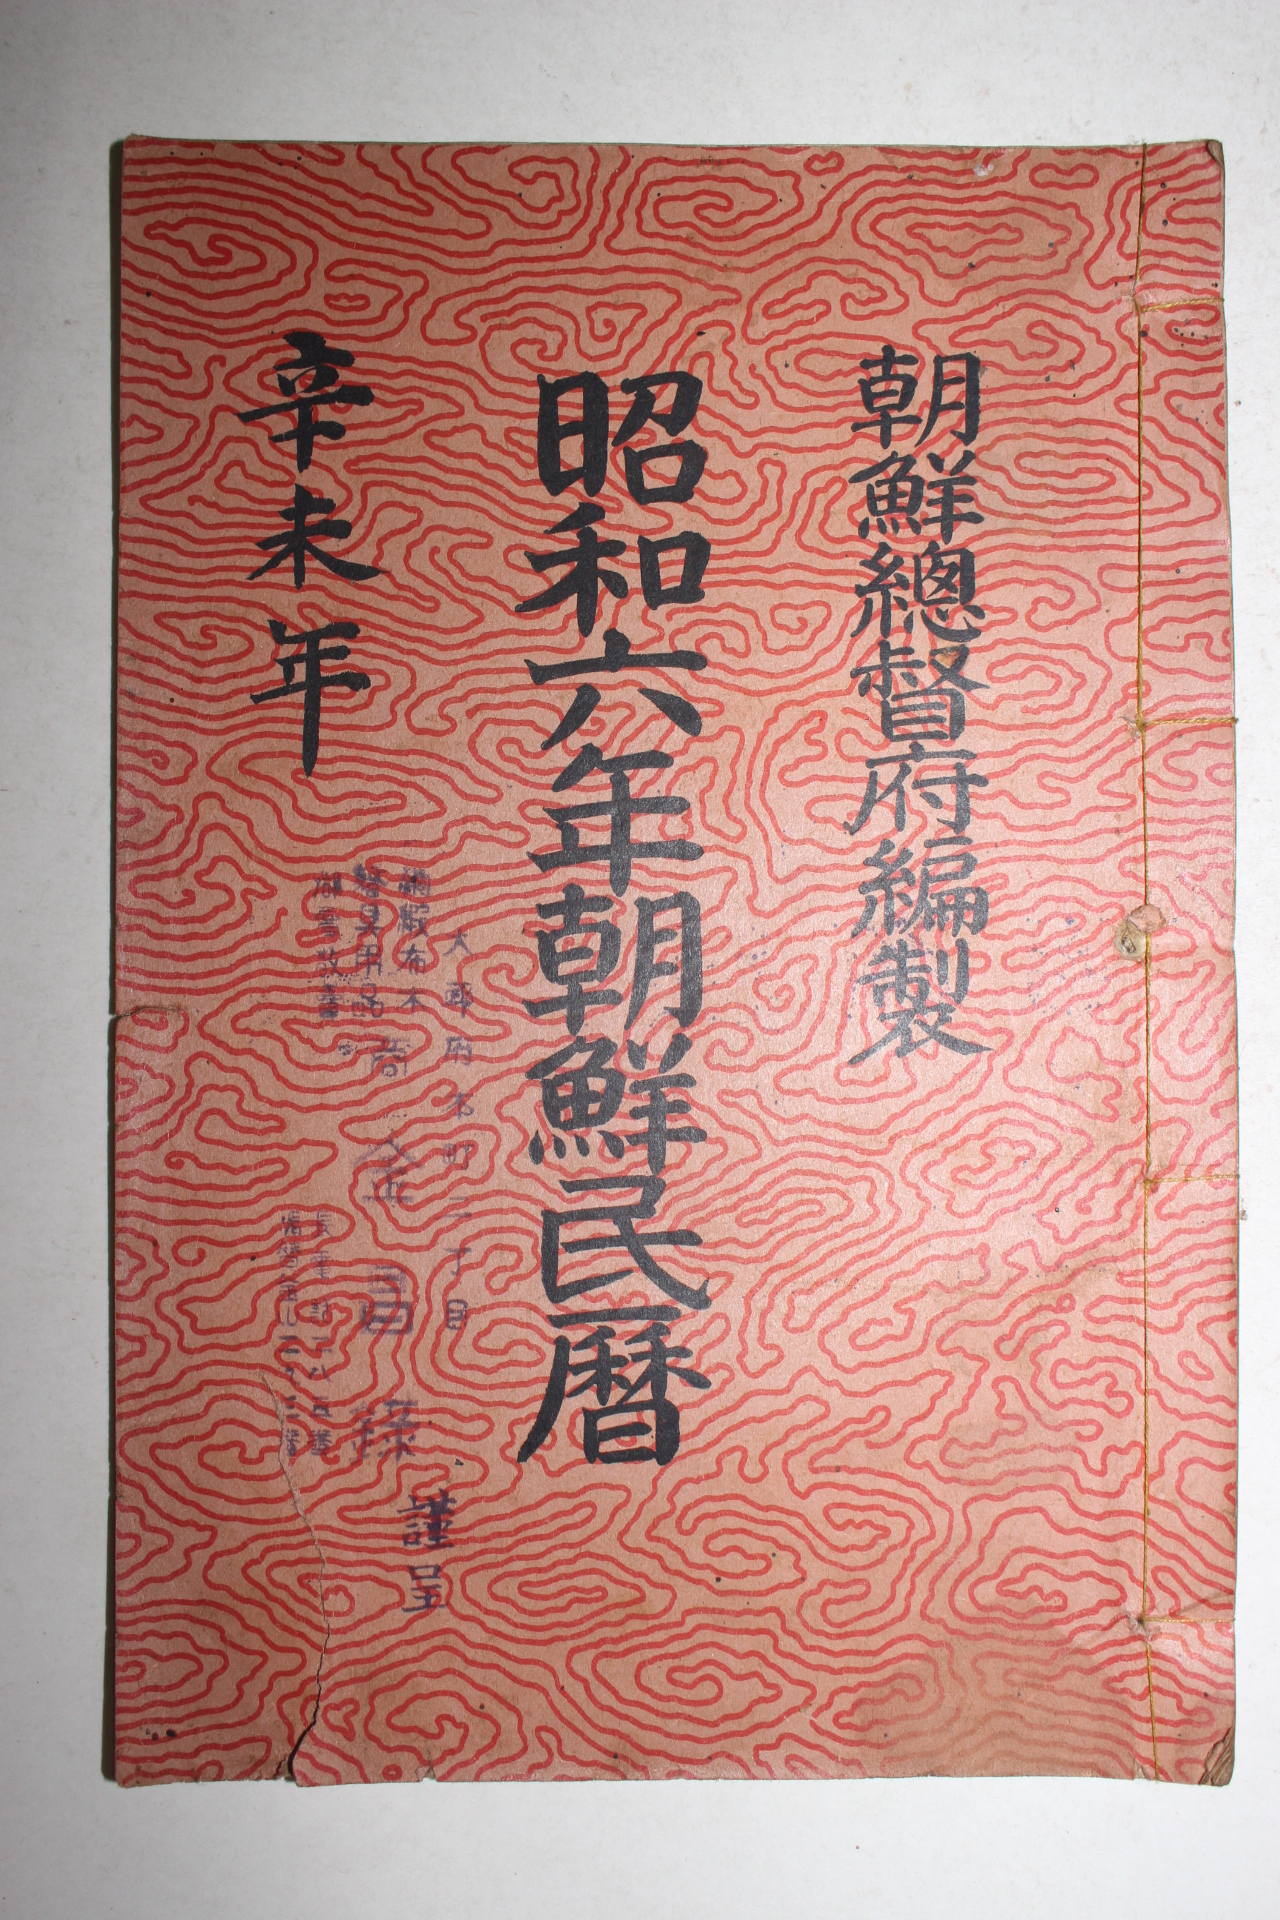 朝鮮總督府編製
昭和六年朝鮮民暦
辛未年
大邱府本町二丁目
綢緞布木
喪具用品商
金昌錄
謹呈